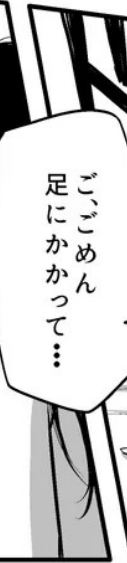 ご、ごめん
足にかかって…